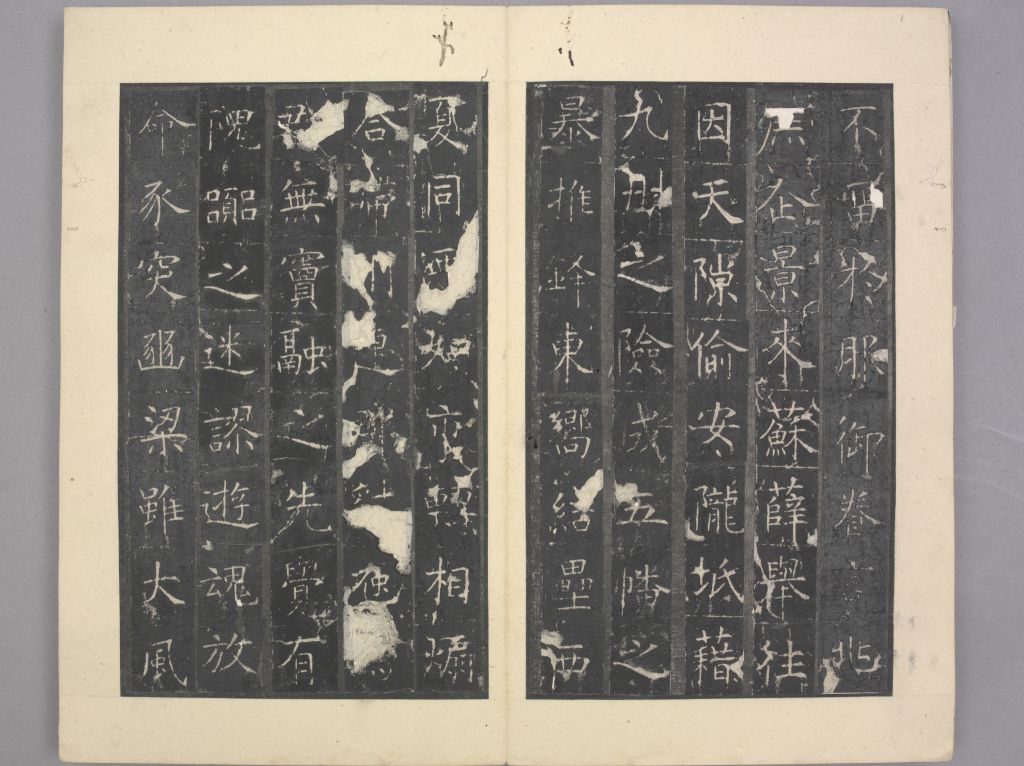 不畱於服御眷言北
庶企景來蘇薛舉往
因天隙偷安隴坻藉
九州之險成五幡之
暴推鋒東嚮結壘西
夏同惡相煽
合
無竇融之先覺有
隗囂之迷謬遊魂放
命豕突豳梁雖大風